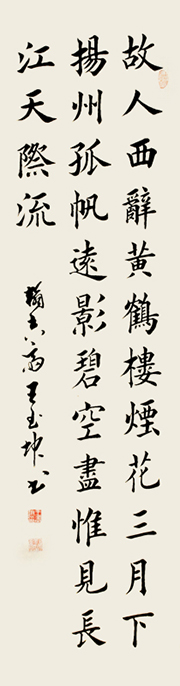 故人西辭黃鶴樓煙花三月下
揚州孤帆遠影碧空盡惟見長
江天際流
王玉坤書